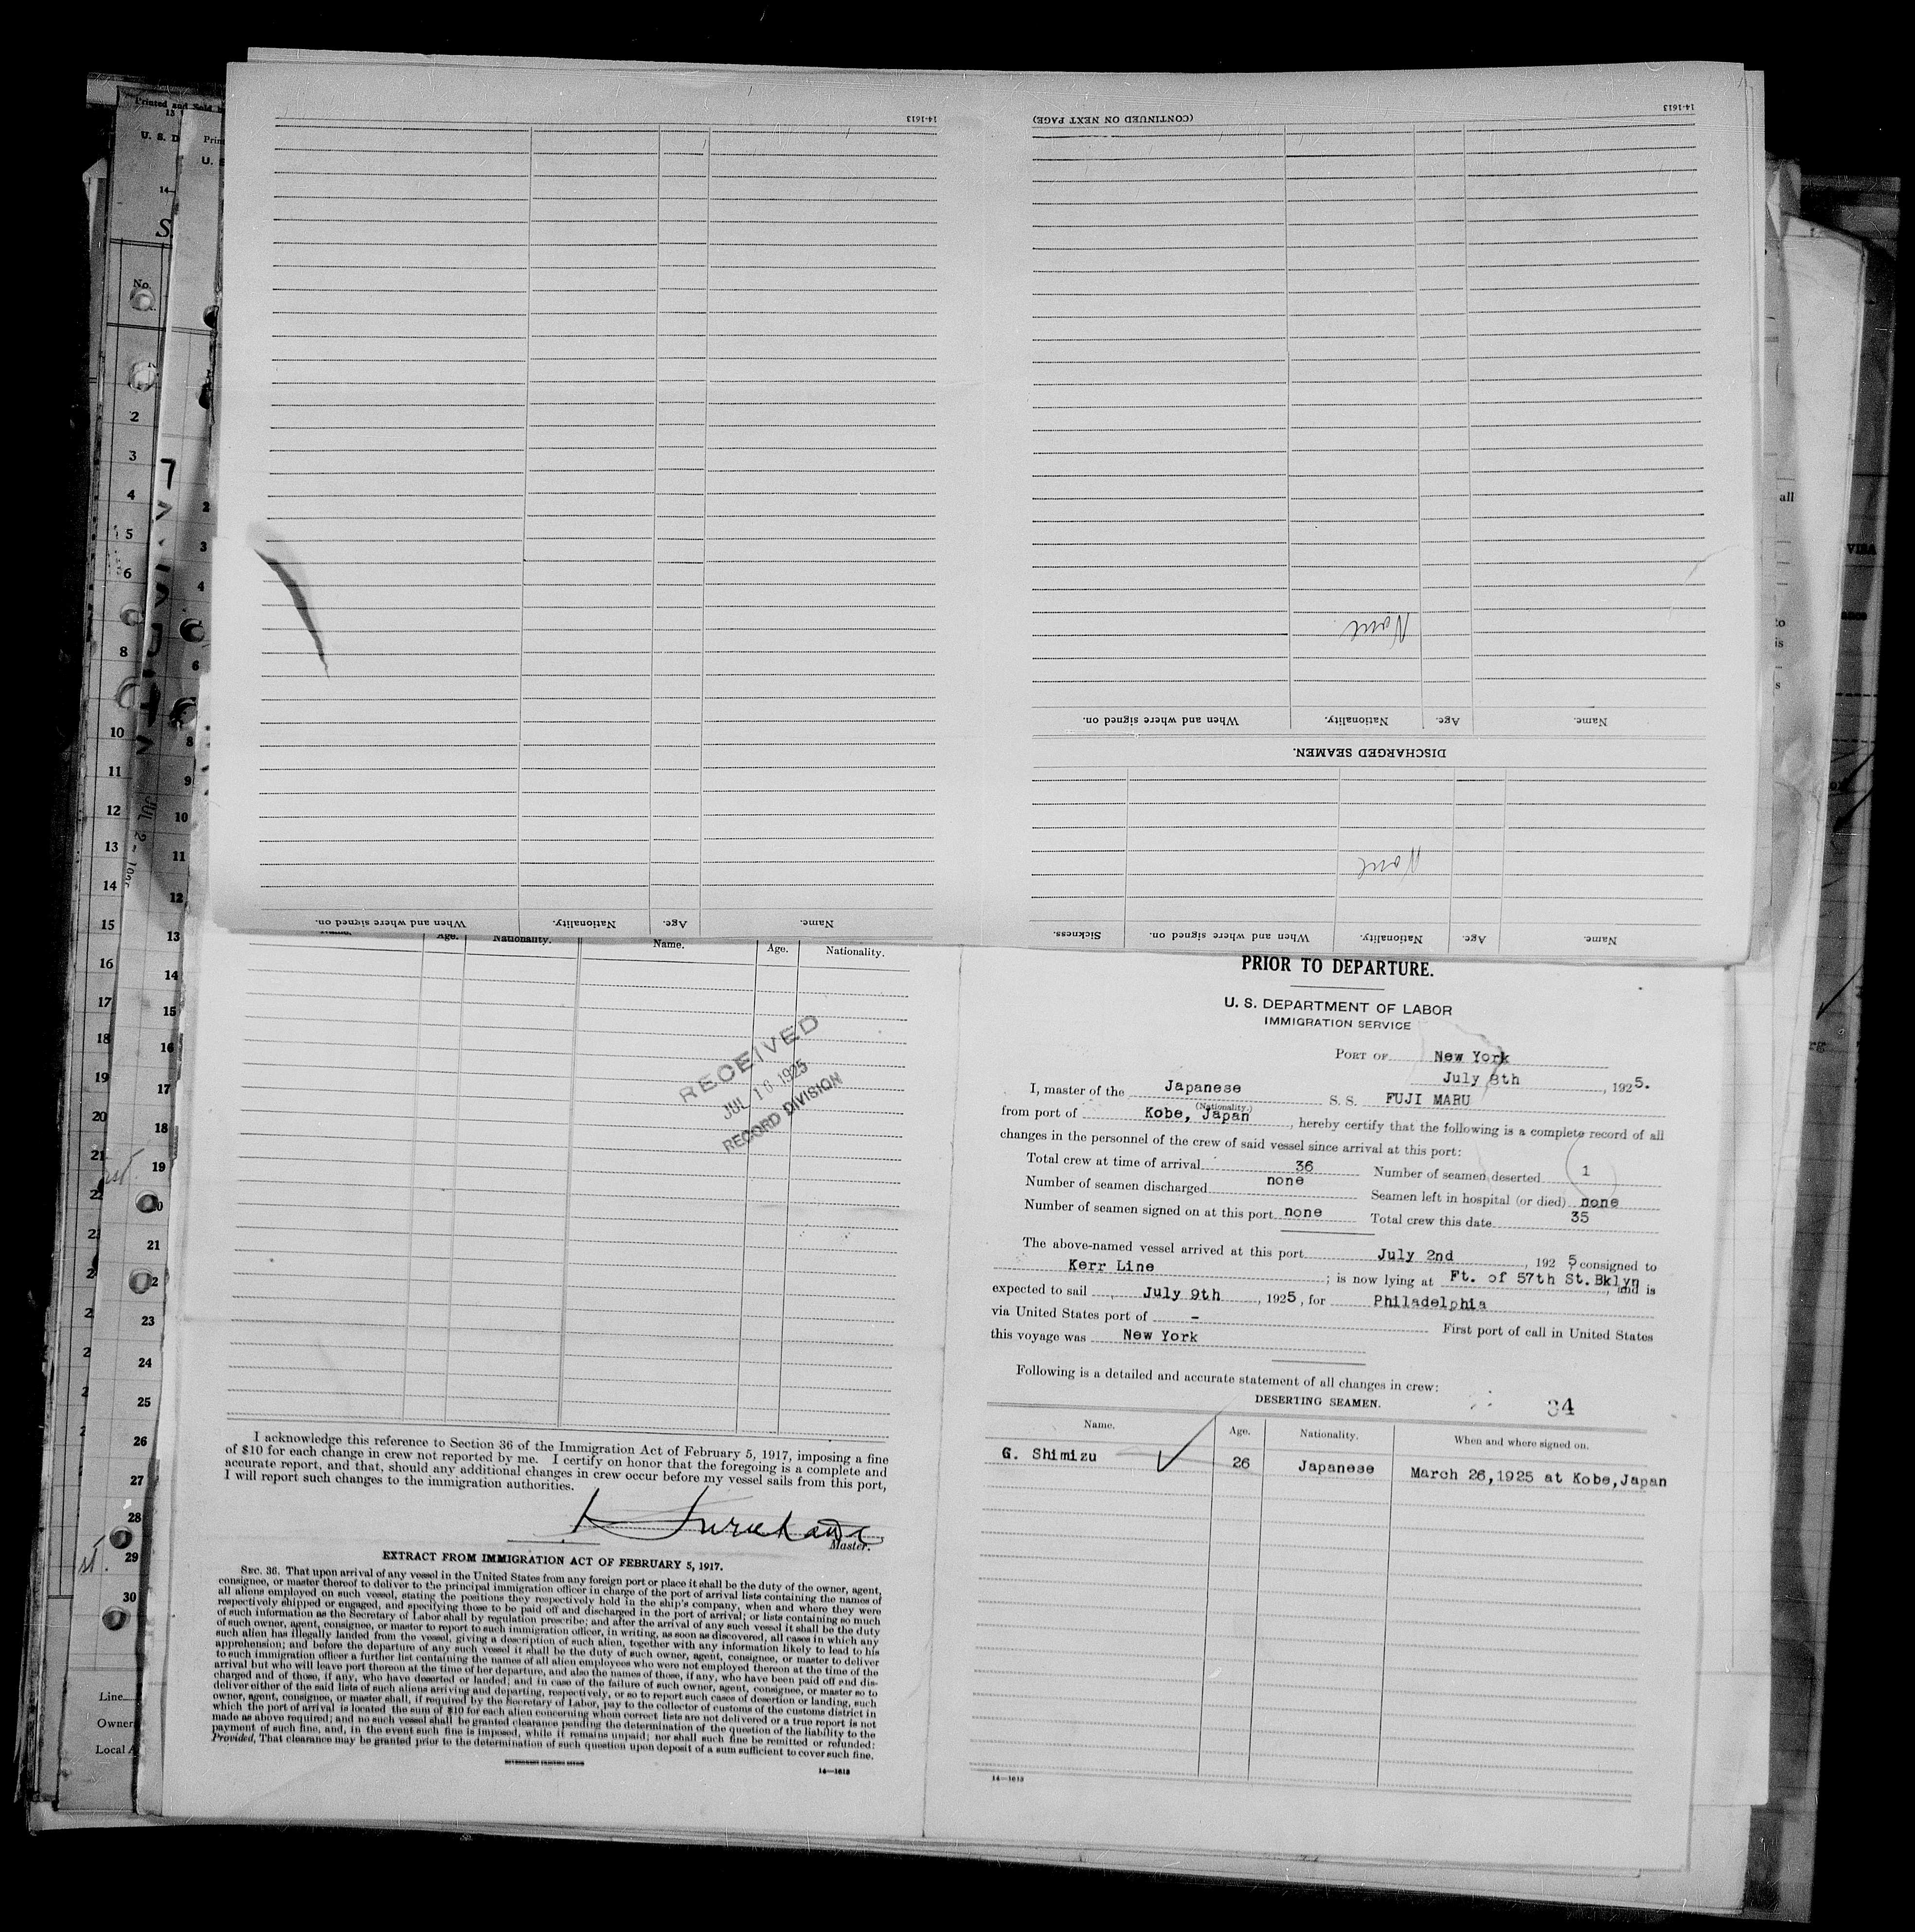 14-1613
(CONTINUED ON NEXT PAGE)
14-1613
None
When and where signed on. Nationality. Age. Name.
DISCHARGED SEAMEN.
None
When and where signed on. Nationality. Age. Name.
Sickness. When and where signed on. Nationality. Age. Name.
Printed and Sold
U. S. D
Prin
U. S
14—
S.
No.
2
3
4
5
6
8
10
11
12
13
14
15
16
17
18
19
20
21
23
24
25
26
27
28
29
30
Line
Owner
Local A
all
to
is
s
VISA
Age. Nationality. Name. Age. Nationality.
RECEIVED
JUL 10 1925
RECORD DIVISION
I acknowledge this reference to Section 36 of the Immigration Act of February 5, 1917, imposing a fine
of $10 for each change in crew not reported by me. I certify on honor that the foregoing is a complete and
accurate report, and that, should any additional changes in crew occur before my vessel sails from this port,
I will report such changes to the immigration authorities.
Master.
EXTRACT FROM IMMIGRATION ACT OF FEBRUARY 5, 1917.
SEC. 36. That upon arrival of any vessel in the United States from any foreign port or place it shall be the duty of the owner, agent,
consignee, or master thereof to deliver to the principal immigration officer in charge of the port of arrival lists containing the names of
all aliens employed on such vessel, stating the positions they respectively hold in the ship's company, when and where they were
respectively shipped or engaged, and specifying those to be paid off and discharged in the port of arrival; or lists containing so much
of such information as the Secretary of Labor shall by regulation prescribe; and after the arrival of any such vessel it shall be the duty
of such owner, agent, consignee, or master to report to such immigration officer, in writing, as soon as discovered, all cases in which any
such alien has illegally landed from the vessel, giving a description of such alien, together with any information likely to lead to his
apprehension; and before the departure of any such vessel it shall be the duty of such owner, agent, consignee, or master to deliver
to such immigration officer a further list containing the names of all alien employees who were not employed thereon at the time of the
arrival but who will leave port thereon at the time of her departure, and also the names of those, if any, who have been paid off and dis-
charged and of those, if any, who have deserted or landed; and in case of the failure of such owner, agent, consignee, or master so to
deliver either of the said lists of such aliens arriving and departing, respectively, or so to report such cases of desertion or landing, such
owner, agent, consignee, or master shall, if required by the Secretary of Labor, pay to the collector of customs of the customs district in
which the port of arrival is located the sum of $10 for each alien concerning whom correct lists are not delivered or a true report is not
made as above required; and no such vessel shall be granted clearance pending the determination of the question of the liability to the
payment of such fine, and, in the event such fine is imposed, while it remains unpaid; nor shall such fine be remitted or refunded:
Provided, That clearance may be granted prior to the determination of such question upon deposit of a sum sufficient to cover such fine.
14—1613
PRIOR TO DEPARTURE.
U. S. DEPARTMENT OF LABOR
IMMIGRATION SERVICE
PORT OF New York
July 8th, 1925.
I, master of the Japanese S. S. FUJI MARU
(Nationality.)
from port of Kobe, Japan, hereby certify that the following is a complete record of all
changes in the personnel of the crew of said vessel since arrival at this port:
Total crew at time of arrival 36 Number of seamen deserted 1
Number of seamen discharged none Seamen left in hospital (or died) none
Number of seamen signed on at this port none Total crew this date 35
The above-named vessel arrived at this port July 2nd, 192 5 consigned to
Kerr Line; is now lying at Ft. of 57th St.Bklyn, and is
expected to sail July 9th, 1925, for Philadelphia
via United States port of - First port of call in United States
this voyage was New York
Following is a detailed and accurate statement of all changes in crew:
DESERTING SEAMEN. 34
Name. Age. Nationality. When and where signed on.
G. Shimizu 26 Japanese March 26,1925 at Kobe,Japan
14—1613